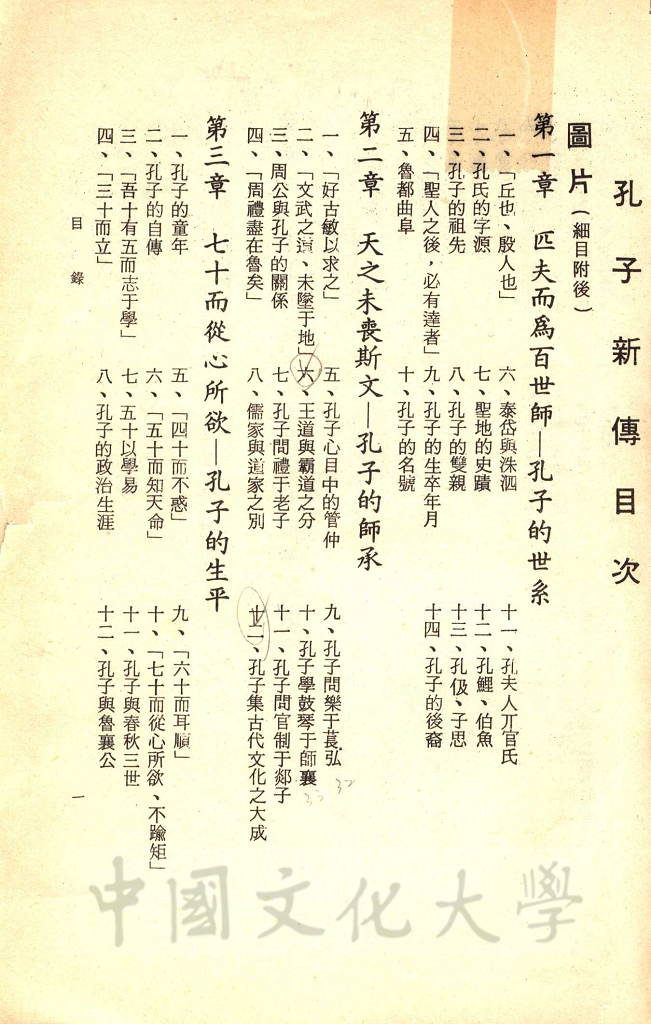 孔子新傳目次
圖片(細目附後)
第一章 匹夫而爲百世師—孔子的世系
一、「丘也、殷人也」
二、孔氏的字源
三、孔子的祖先
四、「聖人之後，必有達者」
五、魯都曲阜
六、泰岱與洙泗
七、聖地的史蹟
八、孔子的雙親
九、孔子的生卒年月
十、孔子的名號
十一、孔夫人丌官氏
十二、孔鯉、伯魚
十三、孔伋、子思
十四、孔子的後裔
第二章 天之未喪斯文—孔子的師承
一、「好古敏以求之」
二、「文武之道、未墜于地」
三、周公與孔子的關係
四、「周禮盡在魯矣」
五、孔子心目中的管仲
六、王道與霸道之分
七、孔子問禮于老子
八、儒家與道家之別
九、孔子問樂于萇弘
十、孔子學鼓琴于師襄
十一、孔子問官制于郯子
十二、孔子集古代文化之大成
33 32
第三章 七十而從心所欲—孔子的生平
一、孔子的童年
二、孔子的自傳
三、「吾十有五而志于學」
四、「三十而立」
五、「四十而不惑」
六、「五十而知天命」
七、五十以學易
八、孔子的政治生涯
九、「六十而耳順」
十、「七十而從心所欲、不踰矩」
十一、孔子與春秋三世
十二、孔子與魯襄公
目錄
一
中國文化大學